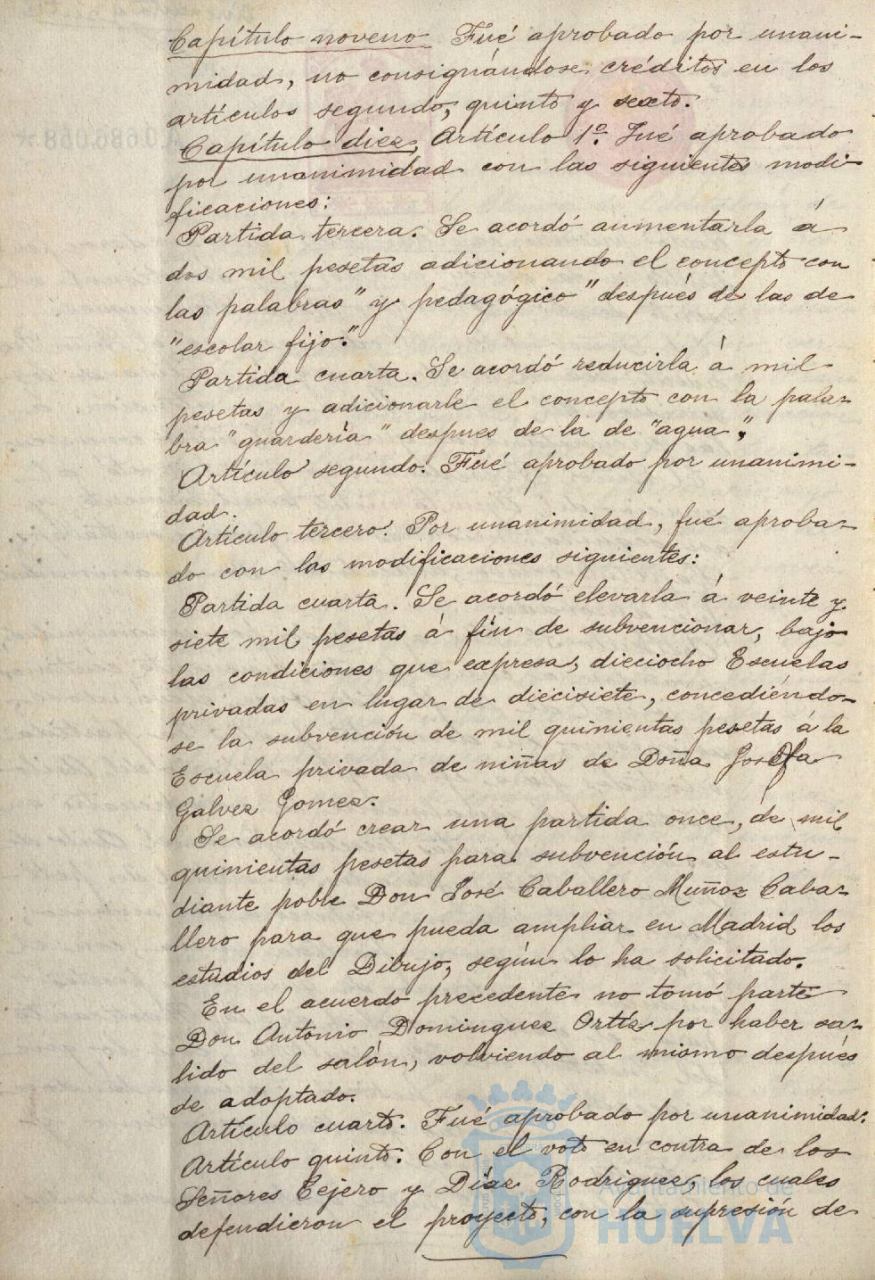 Capítulo noveno Fué aprobado por unani-
midad, no consignándose créditos en los
artículos segundo, quinto y sexto.
Capítulo diez, Artículo 1º. Fué aprobado
por unanimidad con las siguientes modi-
ficaciones:
Partida tercera. Se acordó aumentarla á
dos mil pesetas adicionando el concepto con
las palabras "y pedagógico" después de las de
"escolar fijo."
Partida cuarta. Se acordó reducirla á mil
pesetas y adicionarle el concepto con la pala-
bra "guardería" despues de la de "agua".
Artículo segundo. Fué aprobado por unanimi-
dad.
Artículo tercero. Por unanimidad, fué aproba-
do con las modificaciones siguientes:
Partida cuarta. Se acordó elevarla á veinte y
siete mil pesetas á fin de subvencionar, bajo
las condiciones que expresa, dieciocho Escuelas
privadas en lugar de diecisiete, concediéndo-
se la subvención de mil quinientas pesetas á la
Escuela privada de niñas de Doña Josefa
Galvez Gomez.
Se acordó crear una partida once, de mil
quinientas pesetas para subvención al estu-
diante poble Don José Caballero Muñoz Caba-
llero para que pueda ampliar en Madrid los
estudios del Dibujo, según lo ha solicitado.
En el acuerdo precedente no tomó parte
Don Antonio Dominguez Ortíz por haber sa-
lido del salón, volviendo al mismo después
de adoptado.
Artículo cuarto. Fué aprobado por unanimidad.
Artículo quinto. Con el voto en contra de los
Señores Tejero y Díaz Rodriguez, los cuales
defendieron el proyecto, con la supresión de
Ayuntamiento de
HUELVA